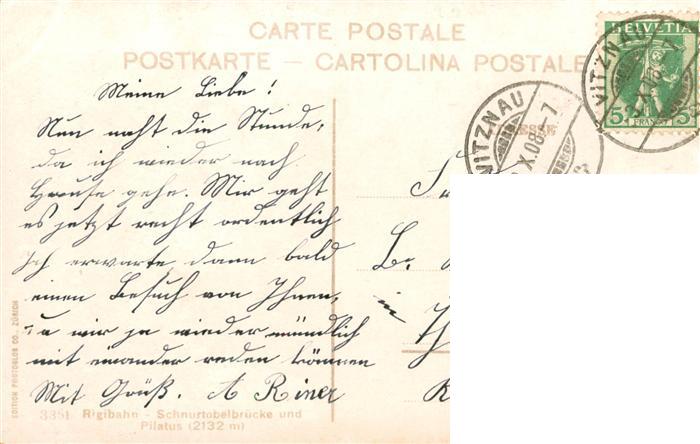 CARTE POSTALE
POSTKARTE — CARTOLINA POSTALE
HELVETIA
5 5
FRANCO
VITZNAU
VITZNAU
X.08.-7
Meine Liebe!
Nun naht die Stunde,
da ich wieder nach
Hause gehe. Mir geht
es jetzt recht ordentlich
Ich erwarte dann bald
einen Besuch von Ihnen,
wir ja wieder mündlich
mit einander reden können
Mit Grüß. A Riner
in
EDITION PHOTOGLOB CO. ZÜRICH
3351 Rigibahn - Schnurtobelbrücke und
Pilatus (2132 m)